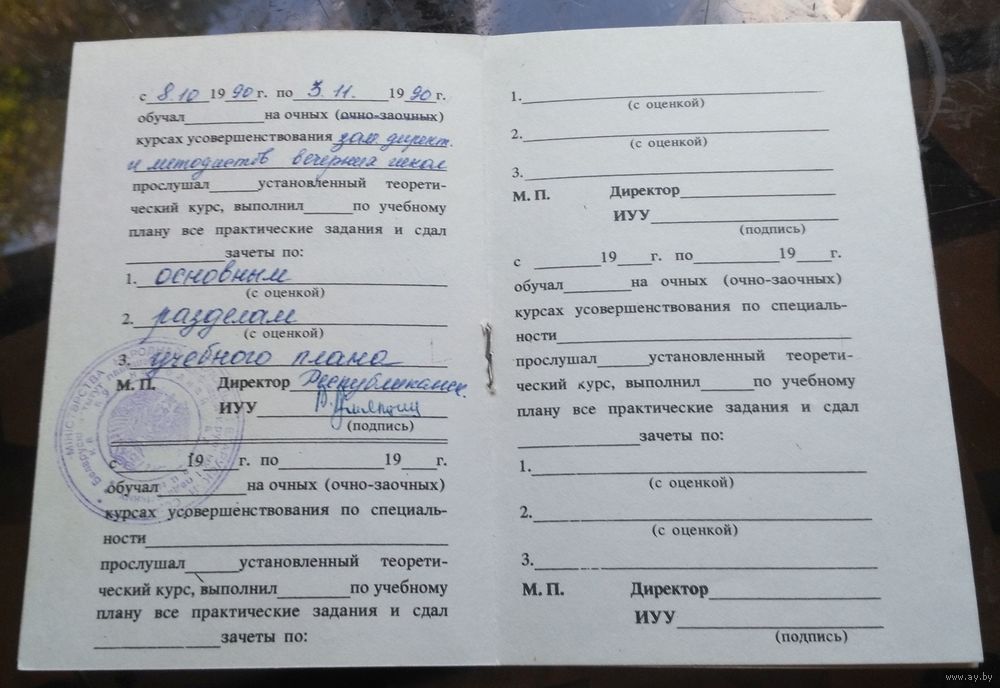 с 8.10 1990 г. по 3.11. 1990 г.
обучал на очных (очно-заочных)
курсах усовершенствования зам. директ.
и методистов вечерних школ
прослушал установленный теорети-
ческий курс, выполнил по учебному
плану все практические задания и сдал
зачеты по:
1. основным
(с оценкой)
2. разделам
(с оценкой)
3. учебного плана
М. П. Директор Республиканск.
ИУУ
(подпись)
с 19 г. по 19 г.
обучал на очных (очно-заочных)
курсах усовершенствования по специаль-
ности
прослушал установленный теорети-
ческий курс, выполнил по учебному
плану все практические задания и сдал
зачеты по:
1.
(с оценкой)
2.
(с оценкой)
3.
М. П. Директор
ИУУ
(подпись)
с 19 г. по 19 г.
обучал на очных (очно-заочных)
курсах усовершенствования по специаль-
ности
прослушал установленный теорети-
ческий курс, выполнил по учебному
плану все практические задания и сдал
зачеты по:
1.
(с оценкой)
2.
(с оценкой)
3.
М. П. Директор
ИУУ
(подпись)
www.ay.by